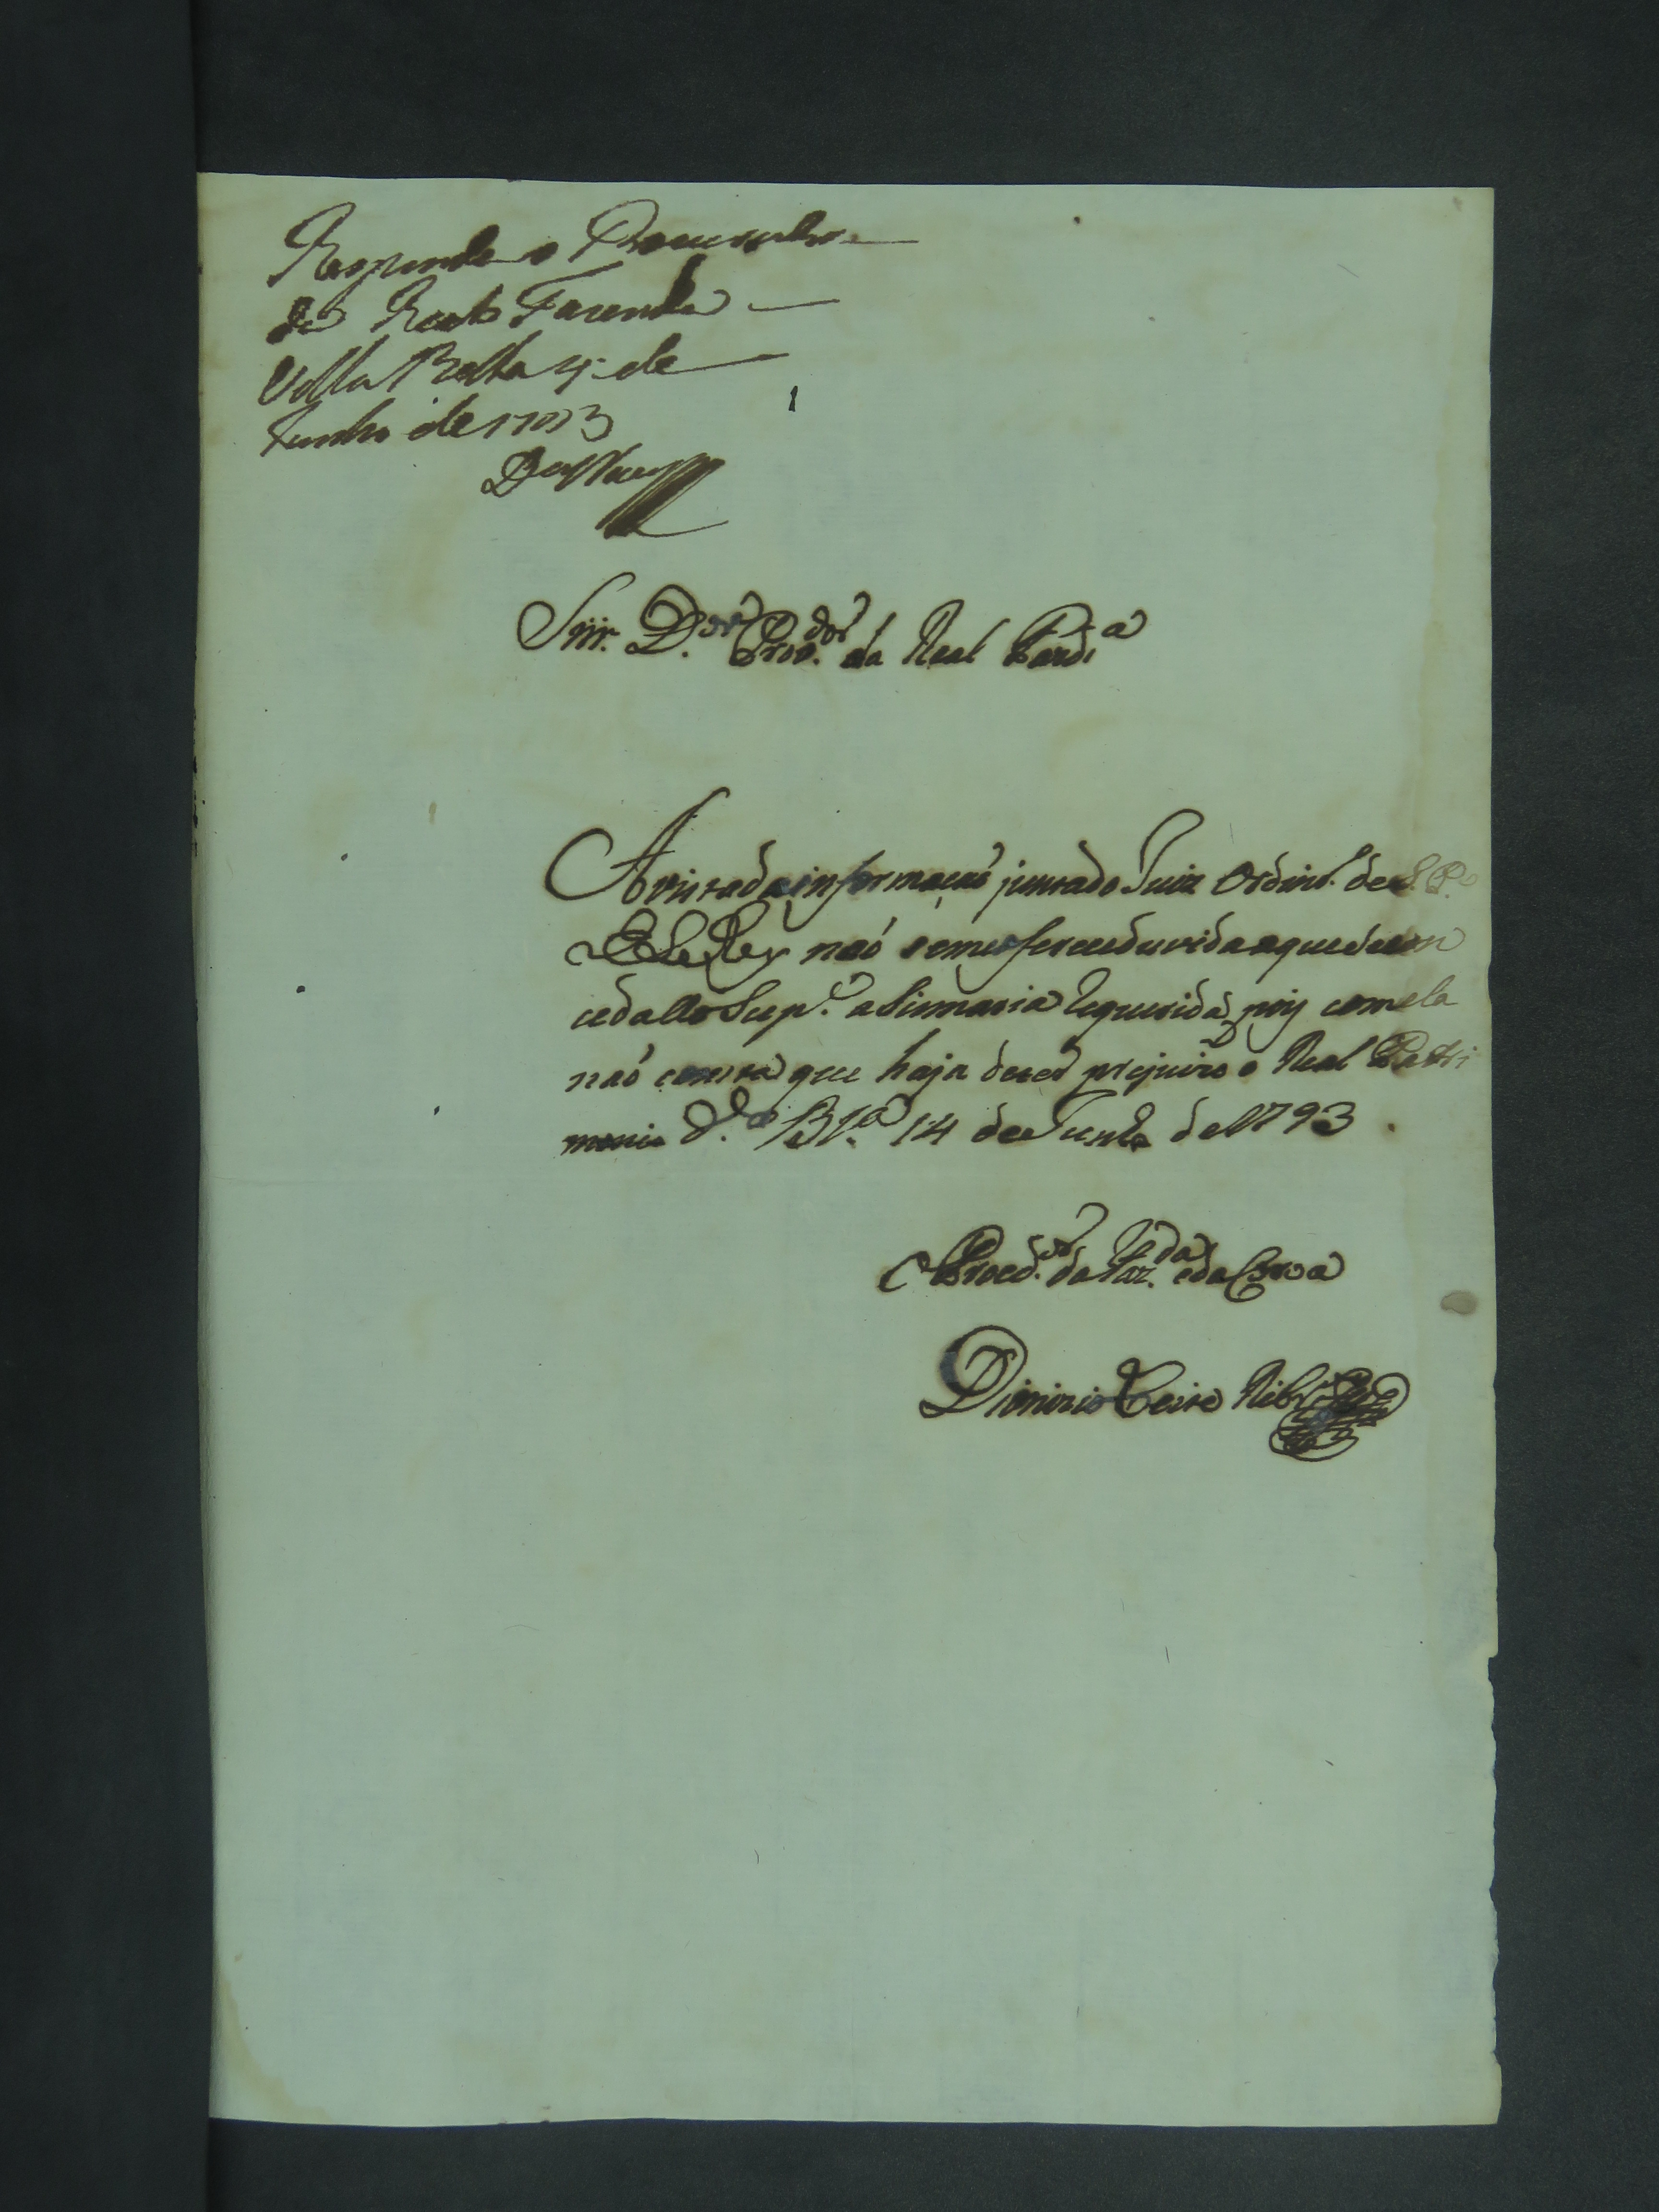 Responda o Procurador
da Real Fazenda
Villa Bella 4 de
Junho de 1793
Snr. D.or Prov.dor da Real Fazd.a
Avista da informacaõ junta do Juiz Ordinr.o de S. P.o
El Rey naõ se me oferece duvida a que se con
ceda ao Sup.e a Sismaria Requerida, pois com ela
naõ consta que haja de ter prejuizo o Real Patri
monio V.a B.la 14 de Junho de 1793.
O Procd.or da Faz.da e da Coroa
Dionizio